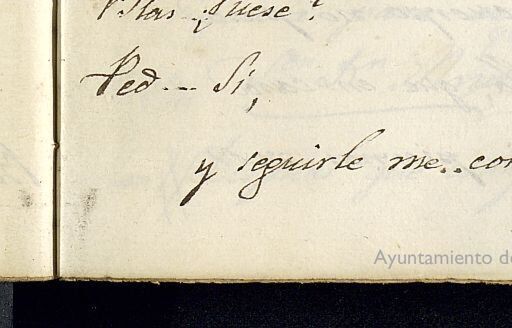 Blas ¿Fuese?
Ped... Sí,
y seguirle me.. con
Ayuntamiento de